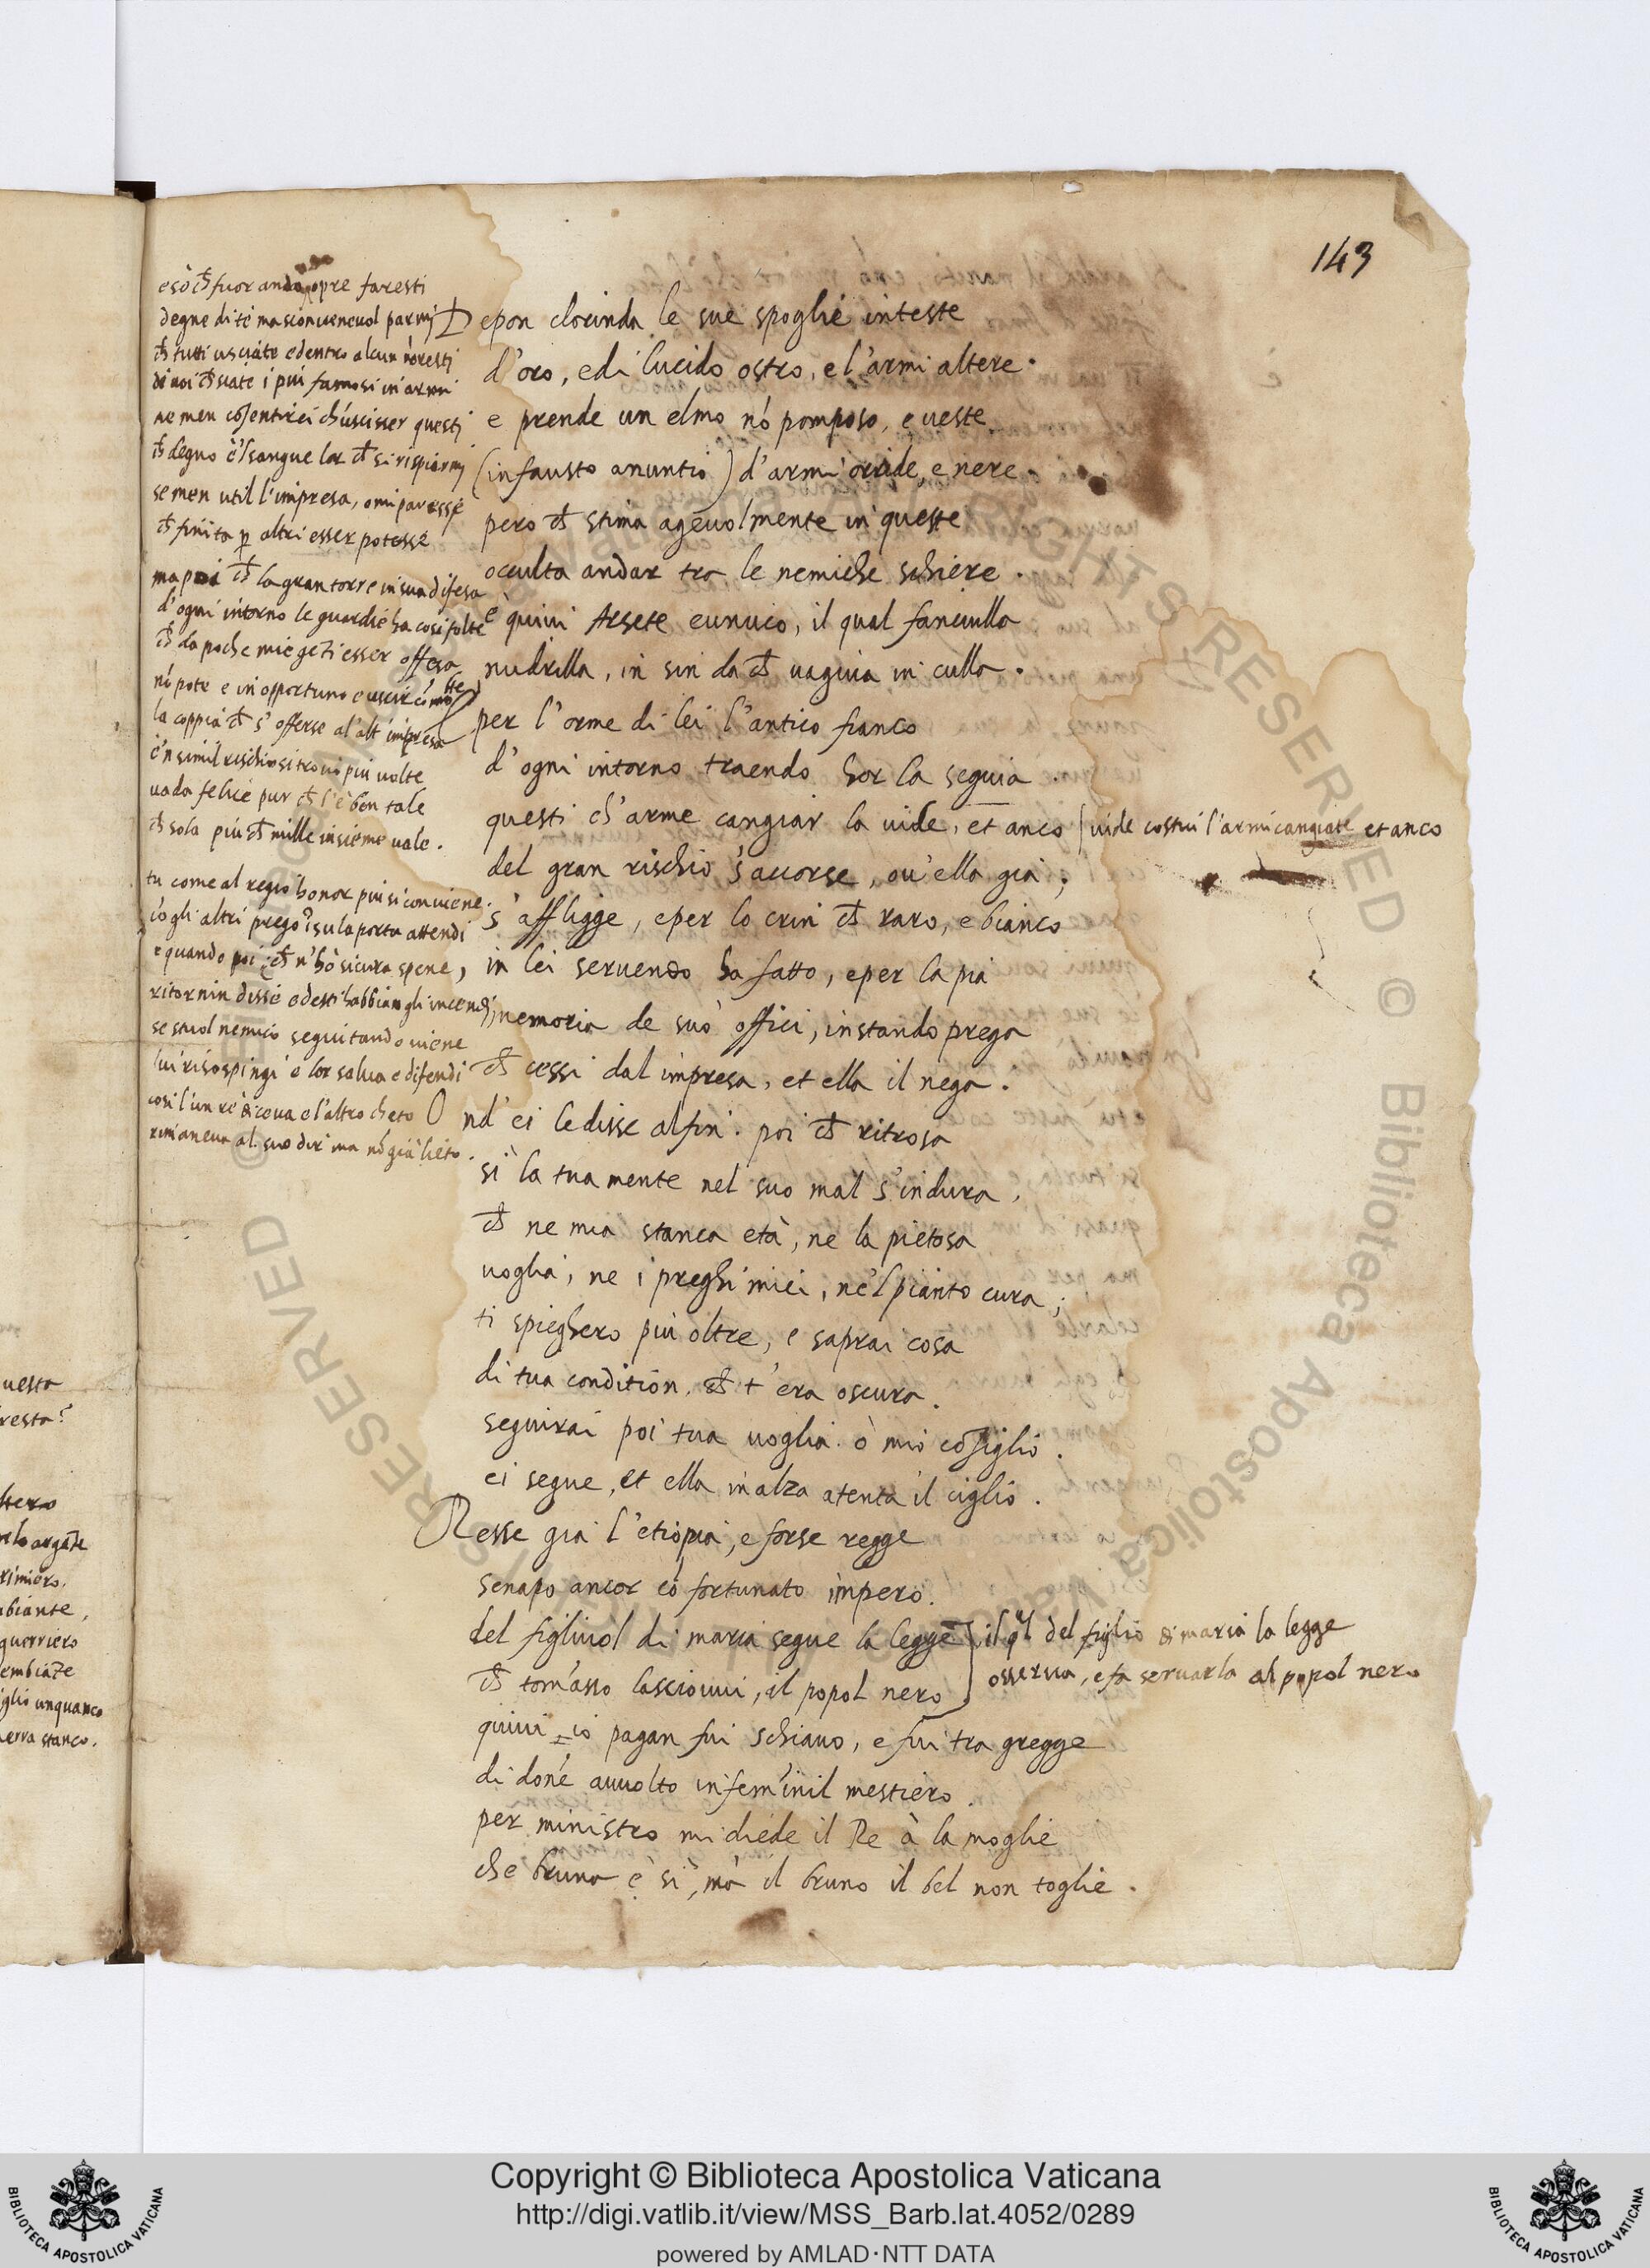 143
esò ch̃ fuor andando opre faresti
degne di te ma sconueneuol parmi
ch̃ tutti usciate e dentro alcun nõ resti
di uoi ch̃ siate i piu famosi in armi
ne men cõsentirei ch'uscisser questi
ch̃ degno è 'l sangue lor ch̃ si rispiarmi
se men util l'impresa, o mi paresse
ch̃ finita p altri esser potesse
ma poi ch̃ la gran torre in sua difesa
d'ogni intorno le guardie ha cosi folte
ch̃ da poche mie gẽti esser offesa
nõ pote e inopportuno e uscir cõ molte
la coppia ch̃ s'offerse al'alt'impresa
e 'n simil rischio si trouò piu uolte
uada felice pur ch̃ l'è ben tale
ch̃ sola piu ch̃ mille insieme uale.
tu come al regio honor piu si conuiene
cõ gli altri prego ĩ su la porta attendi
e quando poi ch̃ n'hò sicura spene,
ritornin disse e desti habbian gli incendi,
se stuol nemico seguitando uiene
lui risospingi e lor salua e difendi
cosi l'un rè diceua e l'altro cheto
rimaneua al suo dir ma nõ già lieto.
Depon clorinda le sue spoglie inteste
d'oro, e di lucido ostro, e l'armi altere.
e prende un elmo nõ pomposo, e ueste
(infausto anuntio) d'armi orride, e nere.
pero ch̃ stima ageuolmente in queste
occulta andar tra le nemiche schiere.
è quiui Arsete eunuco, il qual fanciulla
nudrilla, in sin da ch̃ uagiua in culla.
per l'orme di lei l'antico fianco
d'ogni intorno traendo hor la seguia.
questi ch'arme cangiar la uide, et anco | uide costui l'armi cangiate et anco
del gran rischio s'accorse, ou'ella gia;
s'affligge, e per lo crin ch̃ raro, e bianco
in lei seruendo ha fatto, e per la pia
memoria de suo' offici, instando prega
ch̃ cessi dal impresa, et ella il nega.
Ond'ei le disse alfin. poi ch̃ ritrosa
sì la tua mente nel suo mal s'indura,
ch̃ ne mia stanca età, ne la pietosa
uoglia, ne i preghi miei, ne 'l pianto cura;
ti spieghero più oltre, e saprai cosa
di tua condition, ch̃ t'era oscura.
seguirai poi tua uoglia ò mio cõsiglio.
ei segue, et ella inalza atenta il ciglio.
Resse gia l'etiopia, e forse regge
senapo ancor cõ fortunato impero.
del figliuol di maria segue la legge | il ql del figlio di maria la legge
ch̃ tomasso lascioui, al popol nero | osserua, e fa seruarla al popol nero
quiui io pagan fui schiauo, e fui tra gregge
di done auuolto in feminil mestiero.
per ministro mi diede il Re à la moglie
che bruna è sì, mà il bruno il bel non toglie.
uesta
resta?
guerriero
erra stanco.
Copyright © Biblioteca Apostolica Vaticana
http://digi.vatlib.it/view/MSS_Barb.lat.4052/0289
powered by AMLAD·NTT DATA
BIBLIOTECA APOSTOLICA VATICANA
BIBLIOTECA APOSTOLICA VATICANA